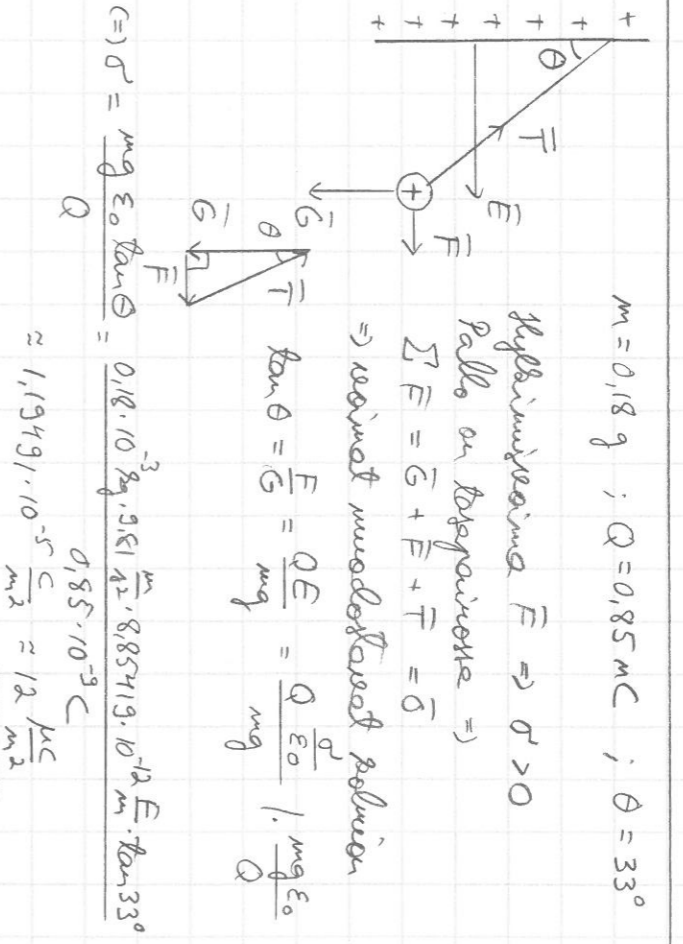 + + + + + + +
θ
T̄
Ē
+
F̄
Ḡ
m = 0,18 g ; Q = 0,85 nC ; θ = 33°
Hylkimisvoima F̄ ⇒ σ > 0
Pallo on tasapainossa ⇒
Σ F̄ = Ḡ + F̄ + T̄ = ō
⇒ voimat muodostavat kolmion
θ
T̄
Ḡ
F̄
tan θ = F/G = QE/mg = Q σ/ε₀ / mg | · mg ε₀/Q
(=) σ = mg ε₀ tan θ / Q = 0,18·10⁻³ kg · 9,81 m/s² · 8,85419·10⁻¹² F/m · tan 33° / 0,85·10⁻⁹ C
≈ 1,19491·10⁻⁵ C/m² ≈ 12 μC/m²